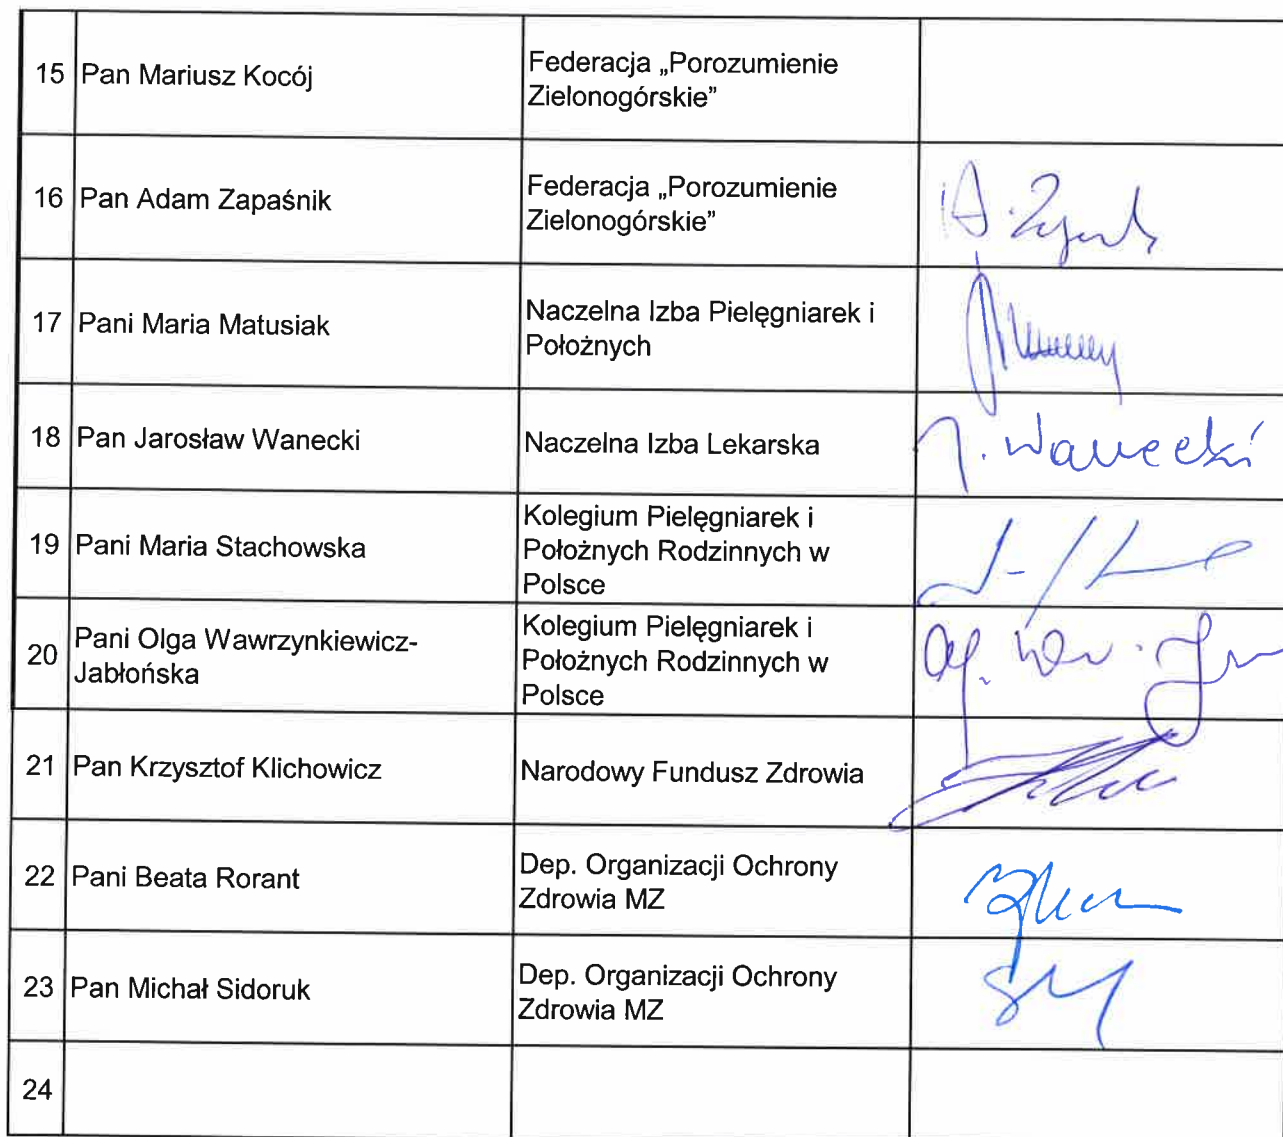 15 Pan Mariusz Kocój Federacja „Porozumienie
Zielonogórskie”
16 Pan Adam Zapaśnik Federacja „Porozumienie
Zielonogórskie”
17 Pani Maria Matusiak Naczelna Izba Pielęgniarek i
Położnych
18 Pan Jarosław Wanecki Naczelna Izba Lekarska J. Wanecki
19 Pani Maria Stachowska Kolegium Pielęgniarek i
Położnych Rodzinnych w
Polsce
20 Pani Olga Wawrzynkiewicz-
Jabłońska Kolegium Pielęgniarek i
Położnych Rodzinnych w
Polsce
21 Pan Krzysztof Klichowicz Narodowy Fundusz Zdrowia
22 Pani Beata Rorant Dep. Organizacji Ochrony
Zdrowia MZ
23 Pan Michał Sidoruk Dep. Organizacji Ochrony
Zdrowia MZ
24